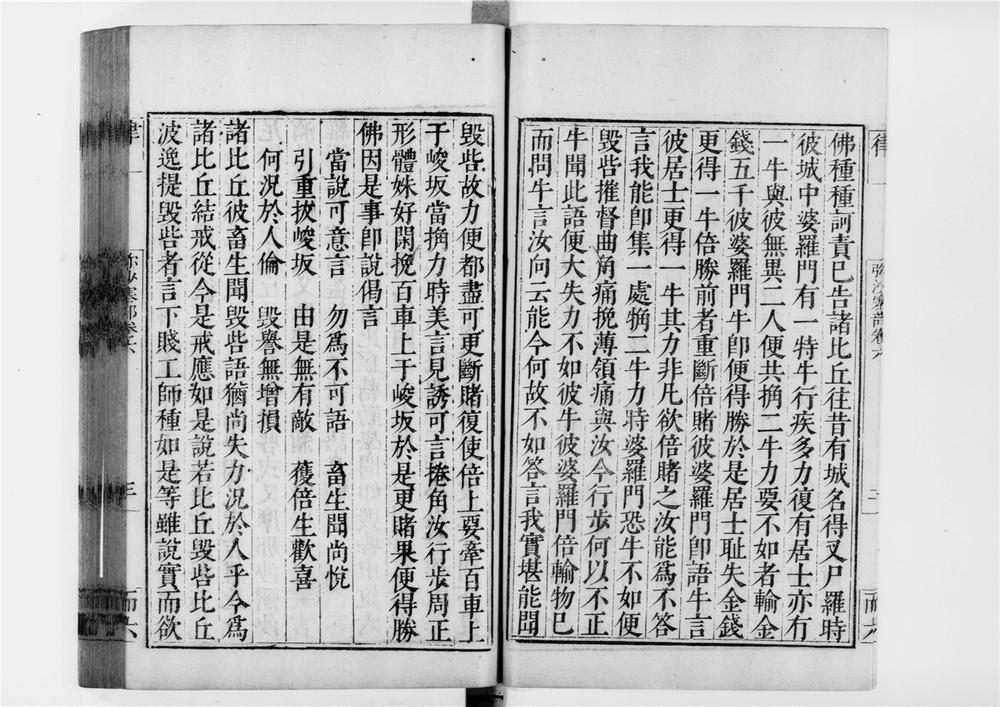 佛種種訶責已告諸比丘往昔有城名得叉尸羅時
彼城中婆羅門有一特牛行疾多力復有居士亦有
一牛與彼無異二人便共捔二牛力要不如者輸金
錢五千彼婆羅門牛即便得勝於是居士耻失金錢
更得一牛倍勝前者重斷倍賭彼婆羅門即語牛言
彼居士更得一牛其力非凡欲倍賭之汝能為不答
言我能即集一處捔二牛力時婆羅門恐牛不如便
毀呰摧督曲角痛挽薄領痛與汝今行步何以不正
牛聞此語便大失力不如彼牛彼婆羅門倍輸物已
而問牛言汝向云能今何故不如答言我實堪能聞
毀呰故力便都盡可更斷賭復使倍上要牽百車上
于峻坂當捔力時美言見誘可言捲角汝行步周正
形體姝好閑挽百車上于峻坂於是更賭果便得勝
佛因是事即說偈言
當說可意言　勿為不可語　畜生聞尚悅
引重拔峻坂　由是無有敵　獲倍生歡喜
何況於人倫　毀譽無增損
諸比丘彼畜生聞毀呰語猶尚失力況於人乎今為
諸比丘結戒從今是戒應如是說若比丘毀呰比丘
波逸提毀呰者言下賤工師種如是等雖說實而欲
律一
三